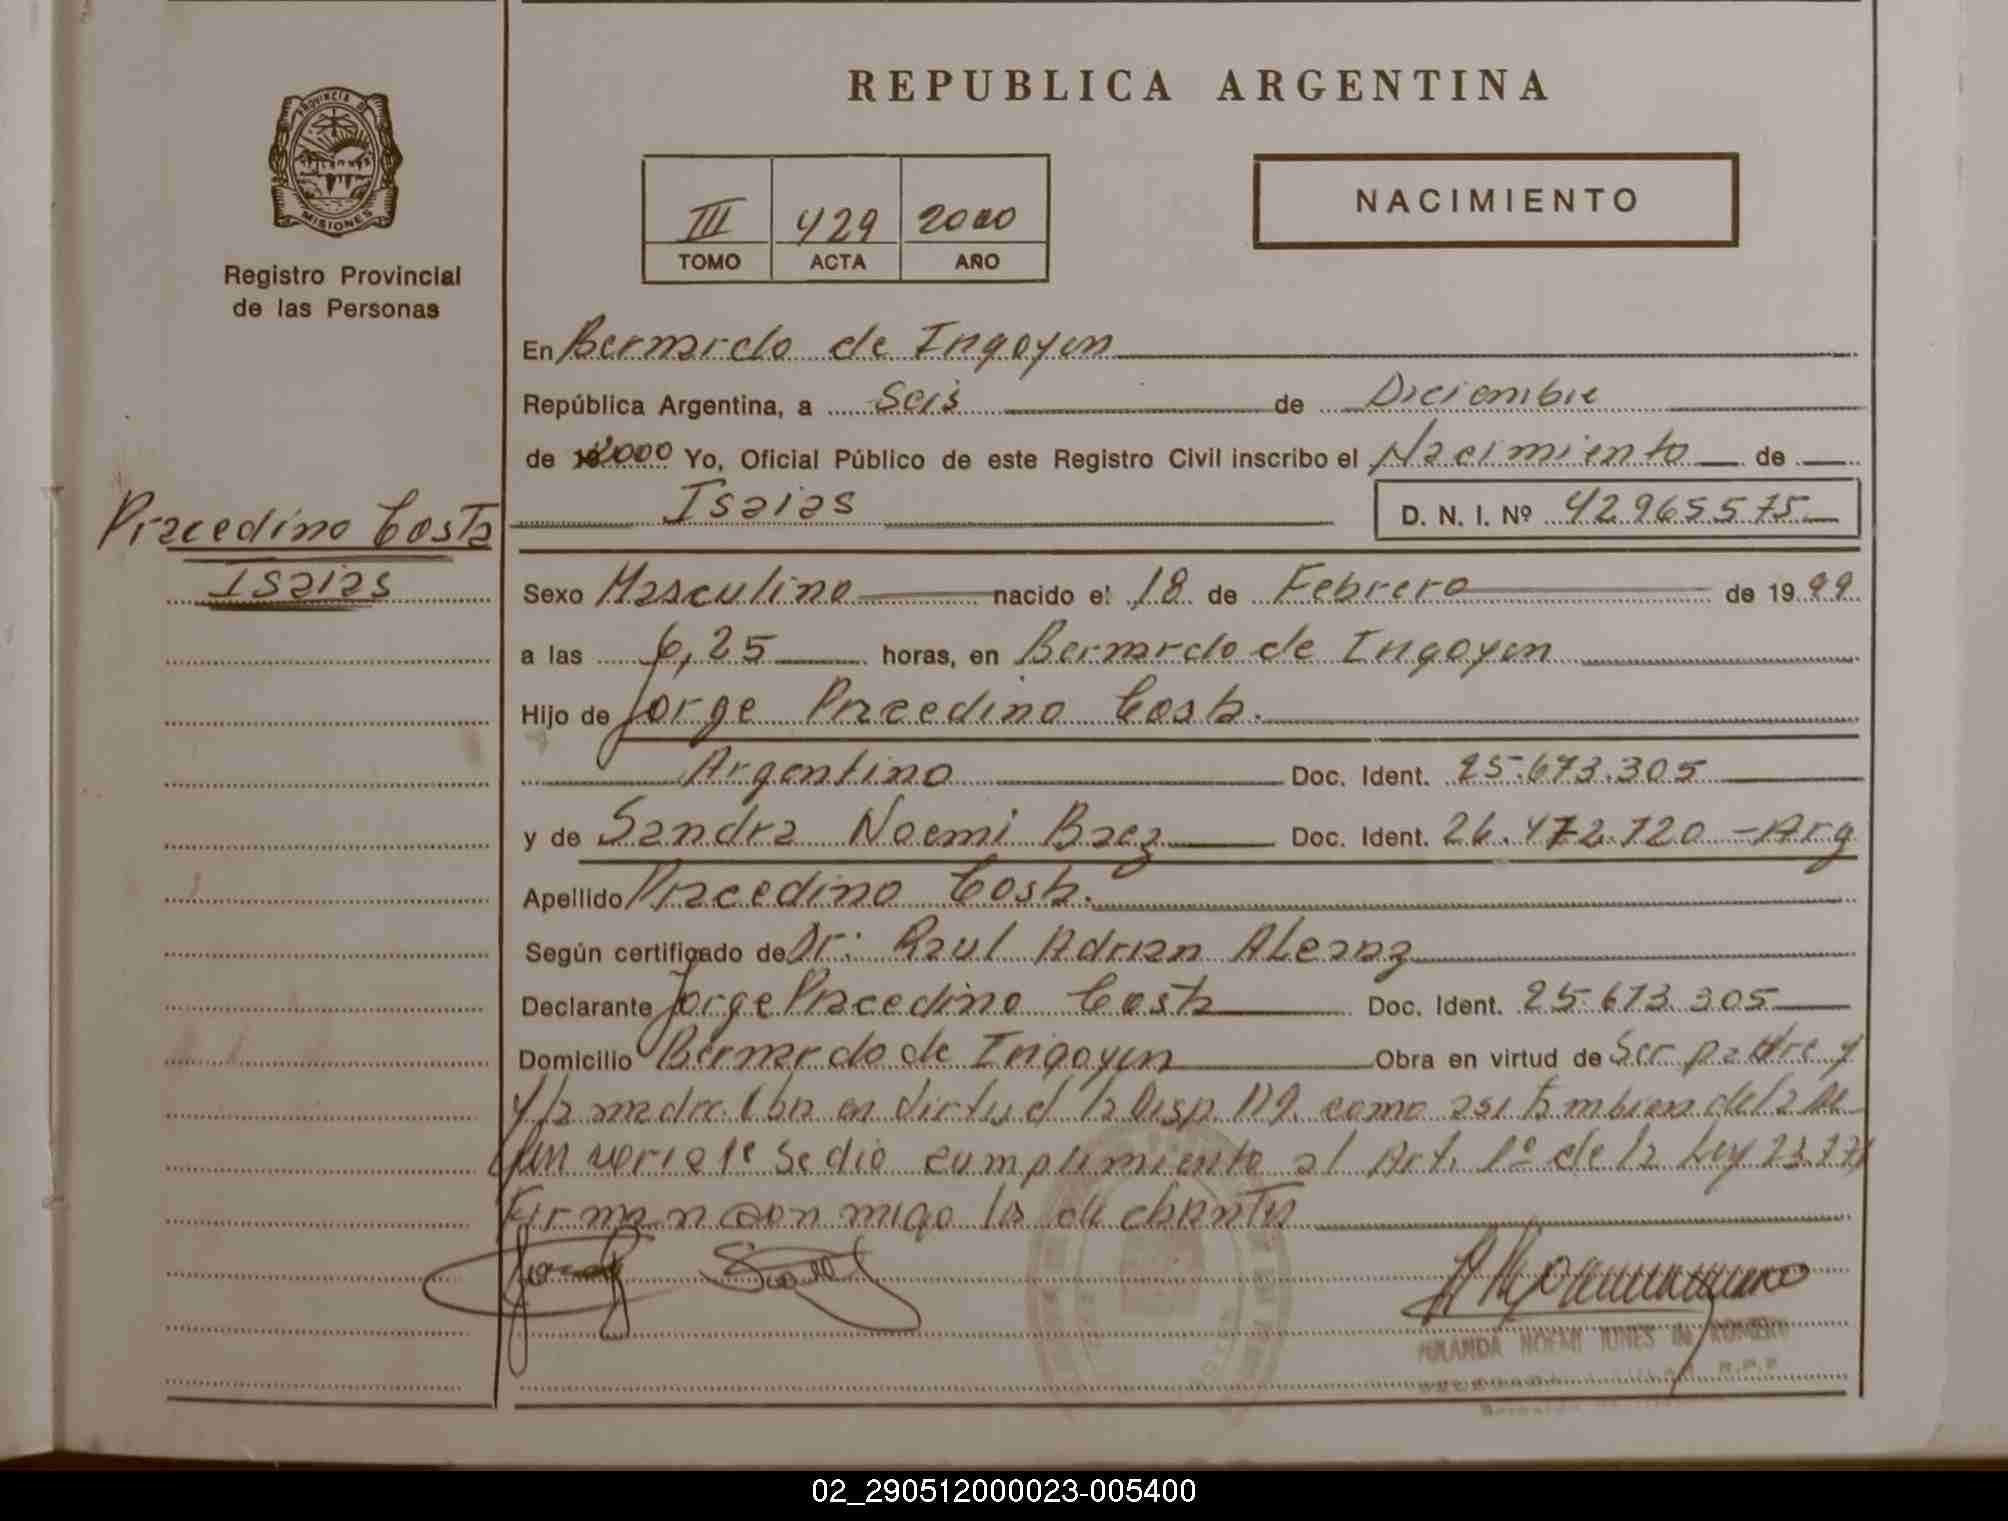 REPUBLICA ARGENTINA
PROVINCIA DE
MISIONES
Registro Provincial
de las Personas
III 429 2000
TOMO ACTA AÑO
NACIMIENTO
En Bernardo de Irigoyen
República Argentina, a Seis de Diciembre
de 2000 Yo, Oficial Público de este Registro Civil inscribo el Nacimiento de
Isaias D. N. I. Nº 42965575
Pracedino Costa
Isaias
Sexo Masculino nacido el 18 de Febrero de 1999
a las 6,25 horas, en Bernardo de Irigoyen
Hijo de Jorge Pracedino Costa.
Argentino Doc. Ident. 25.673.305
y de Sandra Noemi Baez Doc. Ident. 26.472.720 - Arg
Apellido Pracedino Costa.
Según certificado de Dr: Raul Adrian ALcaraz
Declarante Jorge Pracedino Costa Doc. Ident. 25.673.305
Domicilio Bernardo de Irigoyen Obra en virtud de Ser padre y
y la madre. en virtud la Disp. como asi tambien de la
se dio cumplimiento al Art. 1º de la Ley
Firman con migo
NOEMI
02_290512000023-005400